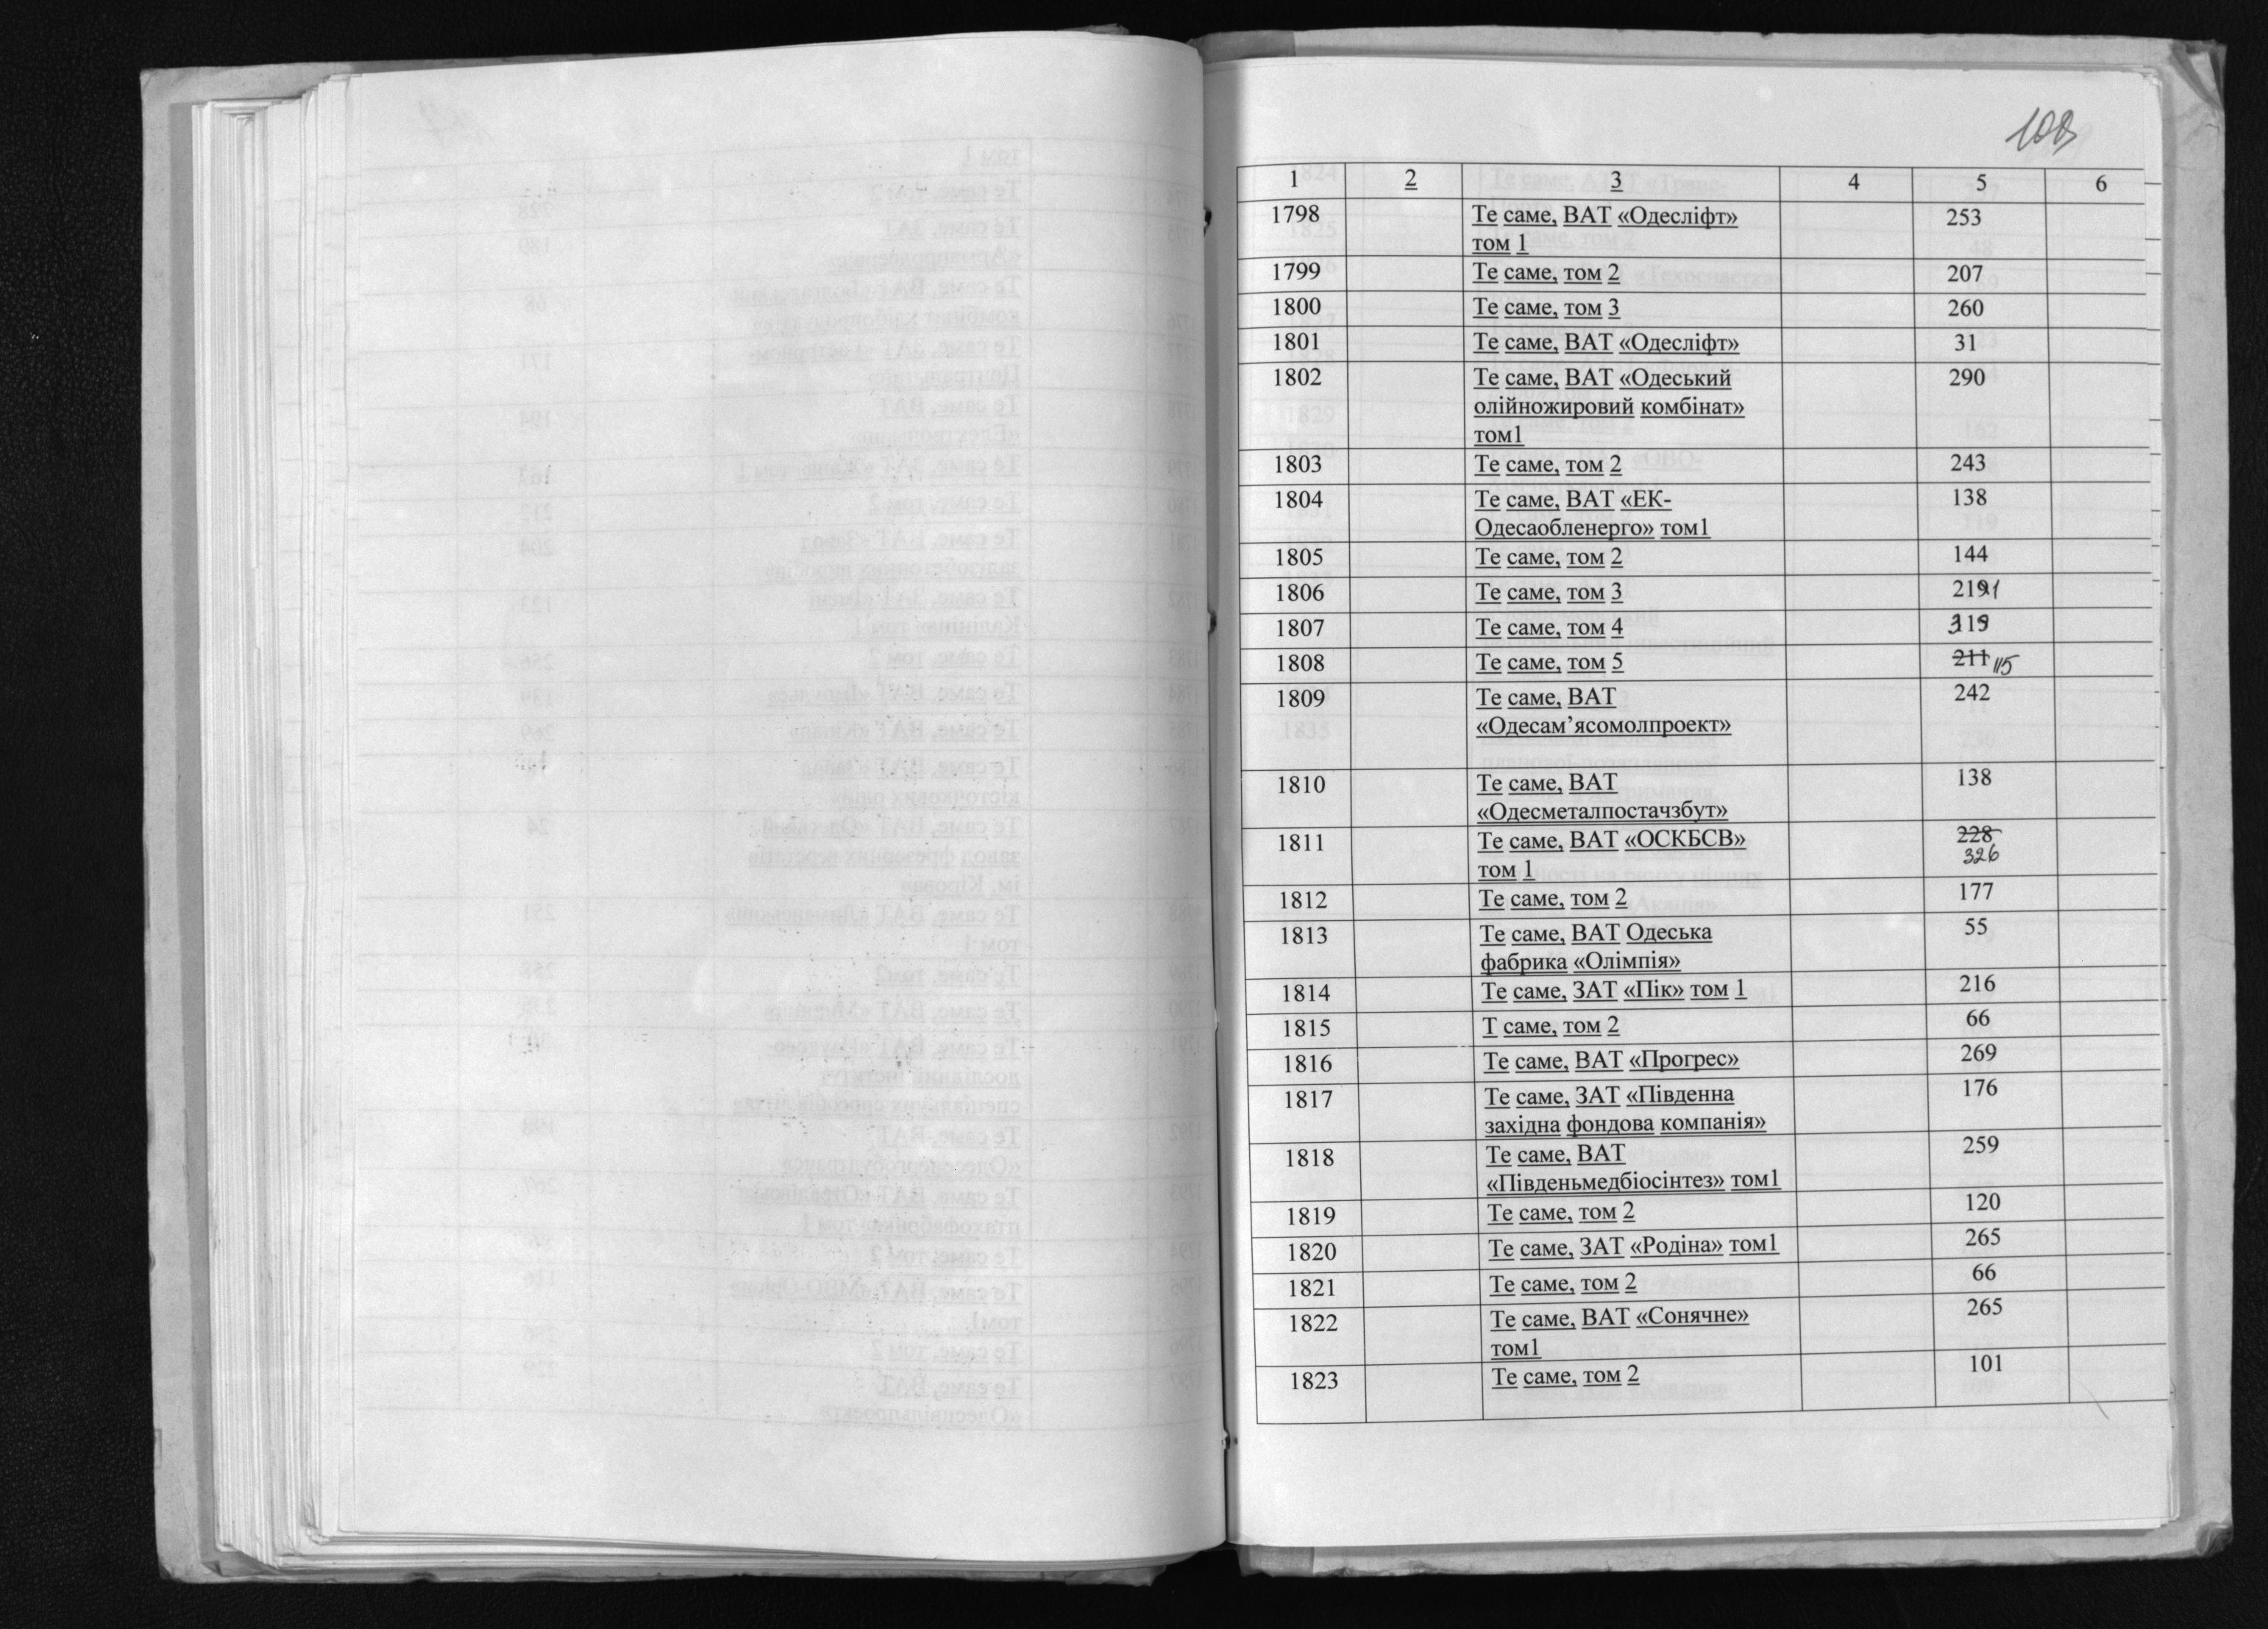 108
1 2 3 4 5 6
1798 Те саме, ВАТ «Одесліфт» 253
том 1
1799 Те саме, том 2 207
1800 Те саме, том 3 260
1801 Те саме, ВАТ «Одесліфт» 31
1802 Те саме, ВАТ «Одеський 290
олійножировий комбінат»
том1
1803 Те саме, том 2 243
1804 Те саме, ВАТ «ЕК- 138
Одесаобленерго» том1
1805 Те саме, том 2 144
1806 Те саме, том 3
1807 Те саме, том 4 319
1808 Те саме, том 5 211 115
1809 Те саме, ВАТ 242
«Одесам’ясомолпроект»
1810 Те саме, ВАТ 138
«Одесметалпостачзбут»
1811 Те саме, ВАТ «ОСКБСВ» 228
том 1 326
1812 Те саме, том 2 177
1813 Те саме, ВАТ Одеська 55
фабрика «Олімпія»
1814 Те саме, ЗАТ «Пік» том 1 216
1815 Т саме, том 2 66
1816 Те саме, ВАТ «Прогрес» 269
1817 Те саме, ЗАТ «Південна 176
західна фондова компанія»
1818 Те саме, ВАТ 259
«Південьмедбіосінтез» том1
1819 Те саме, том 2 120
1820 Те саме, ЗАТ «Родіна» том1 265
1821 Те саме, том 2 66
1822 Те саме, ВАТ «Сонячне» 265
том1
1823 Те саме, том 2 101